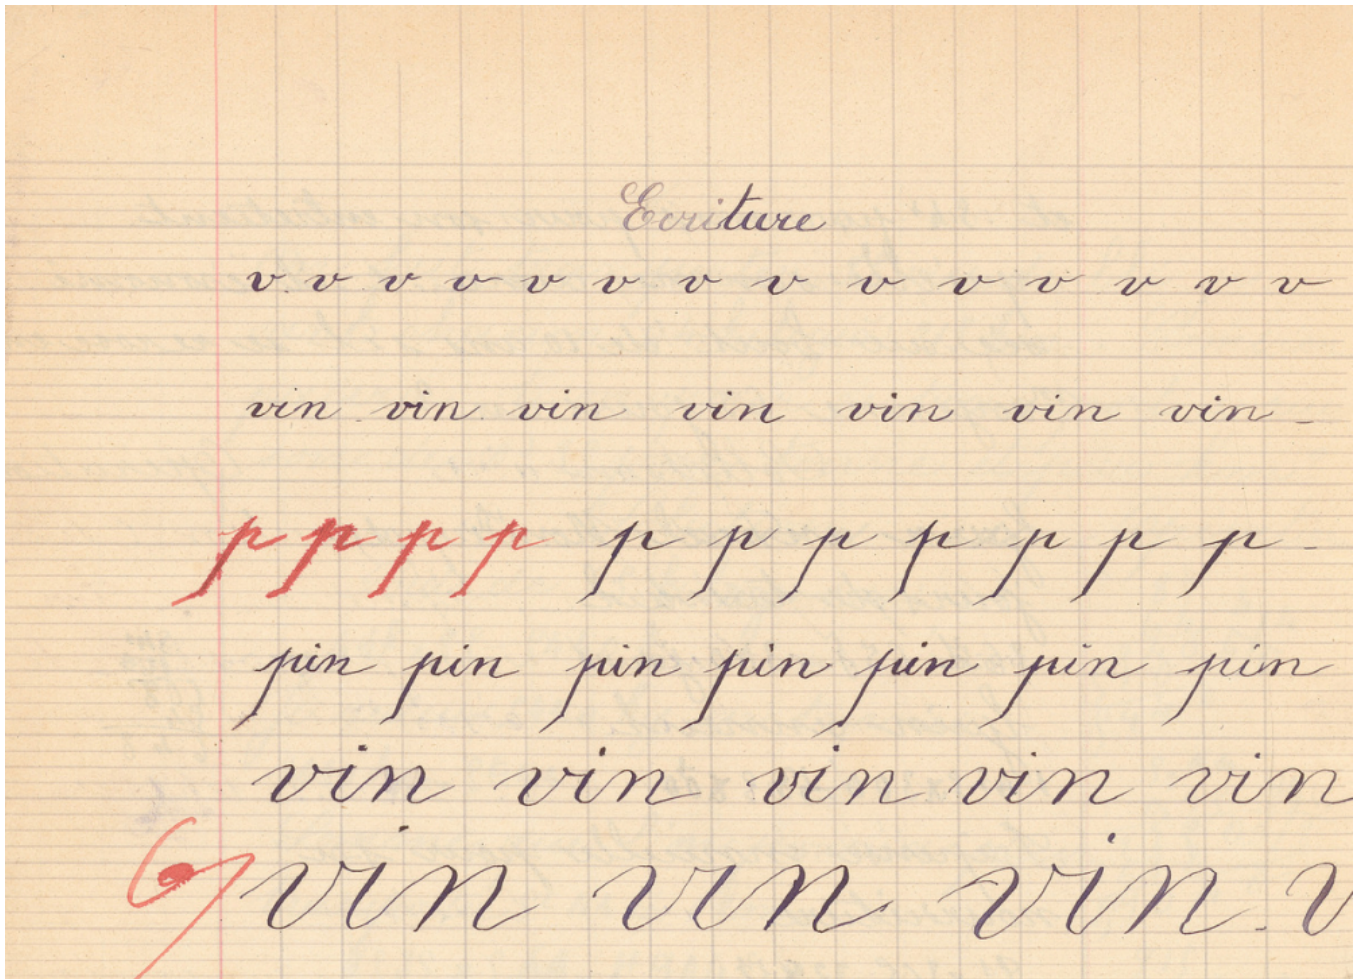 Ecriture
v v v v v v v v v v v v v v
vin vin vin vin vin vin vin -
p p p p p p p p p p p -
pin pin pin pin pin pin pin
vin vin vin vin vin
vin vin vin - v